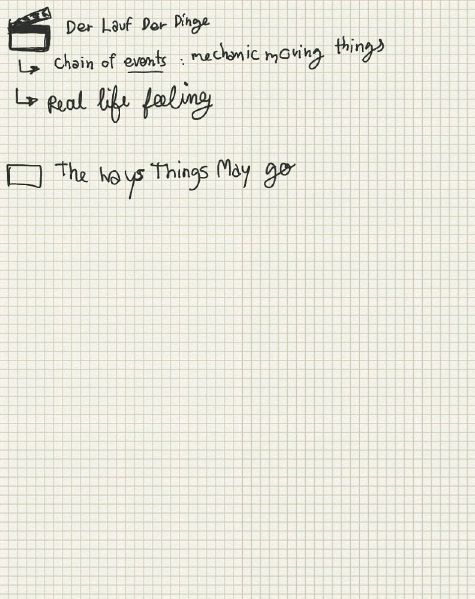 Der Lauf Der Dinge
Chain of events : mechanic moving things
Real life feeling
The ways Things May go